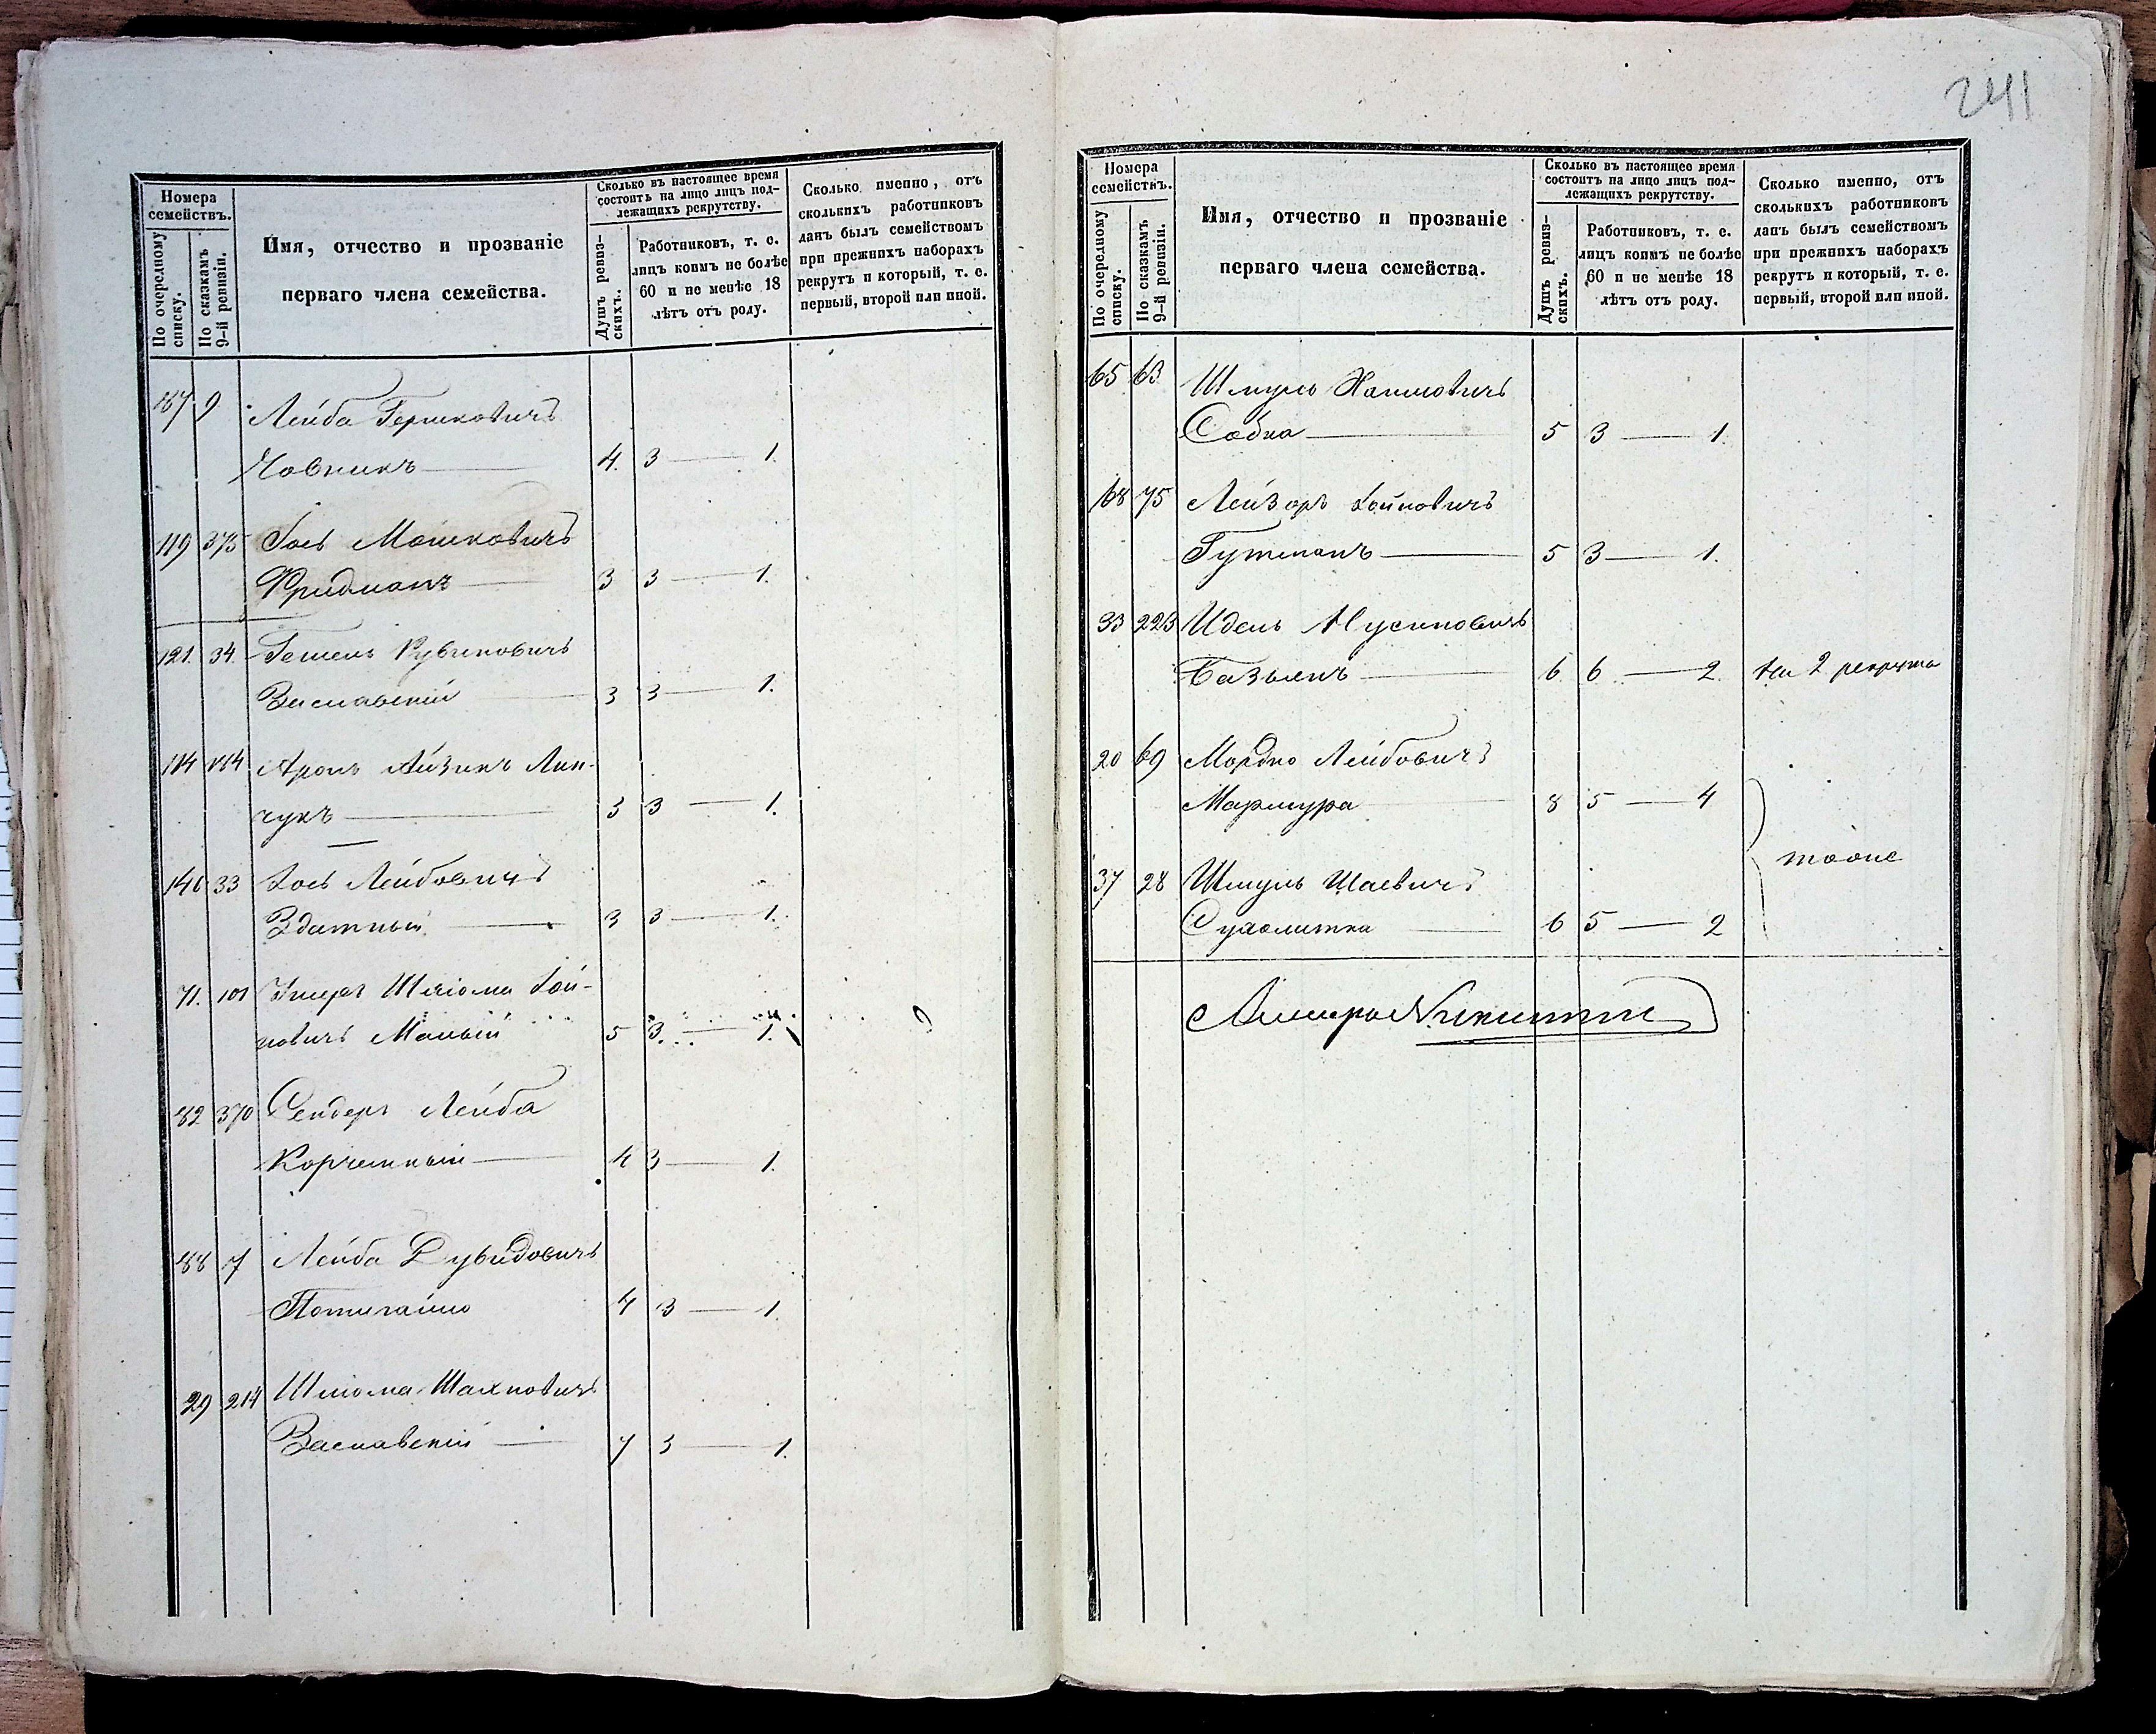 241
Номера семействъ.
По очередному списку.
По сказкамъ 9-й ревизіи.
Имя, отчество и прозваніе
перваго члена семейства.
Сколько въ настоящее время
состоитъ на лицо лицъ под-
лежащихъ рекрутству.
Душъ ревиз-
скихъ.
Работниковъ, т. е.
лицъ коимъ не болѣе
60 и не менѣе 18
лѣтъ отъ роду.
Сколько именно, отъ
сколькихъ работниковъ
данъ былъ семействомъ
при прежнихъ наборахъ
рекрутъ и который, т. е.
первый, второй или иной.
187 9 Лейба Гершковичъ
Човникъ 4. 3 — 1.
119 375 Іось Мошковичъ
Фридманъ 3 3 — 1.
121. 34. Гешель Рувиновичъ
Заславскій 3 3 — 1.
114 Аронъ Айзикъ Лин-
чукъ 3 3 — 1.
140 33 Іось Лейбовичъ
Здатный 3 3 — 1.
71. 101 Шліома Іой-
новичъ Малый 5 3. — 1.
82 370 Сендеръ Лейба
Корчемный 4 3 — 1.
88 7 Лейба Дувидовичъ
4 3 — 1.
29 214 Шліома Шахновичъ
Заславскій 7 3 — 1.
Номера
семействъ.
По очередному списку.
По сказкамъ 9-й ревизіи.
Имя, отчество и прозваніе
перваго члена семейства.
Сколько въ настоящее время
состоитъ на лицо лицъ под-
лежащихъ рекрутству.
Душъ ревиз-
скихъ.
Работниковъ, т. е.
лицъ коимъ не болѣе
60 и не менѣе 18
лѣтъ отъ роду.
Сколько именно, отъ
сколькихъ работниковъ
данъ былъ семействомъ
при прежнихъ наборахъ
рекрутъ и который, т. е.
первый, второй или иной.
65 63 Шмуль Хаимовичъ
Собка 5 3 — 1.
68 75 Лейзоръ Іойновичъ
Гутманъ 5 3 — 1.
33 223 Идель Нусиновичъ
6 6 — 2. На 2 рекрута
20 69 Мордко Лейбовичъ
Мармура 8 5 — 4
тоже
37 28 Шмуль Шаевичъ
Сухолитка 6 5 — 2